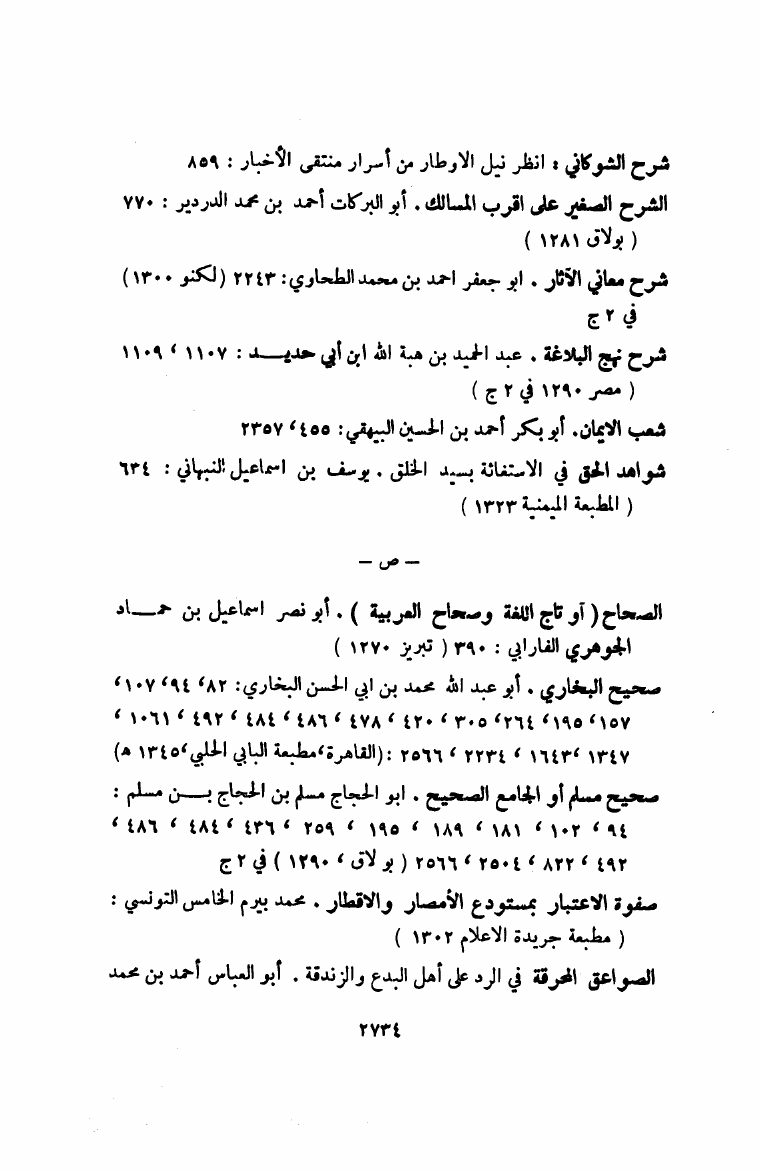 شرح الشوكاني : انظر نيل الاوطار من أسرار منتقى الأخبار : ٨٥٩
الشرح الصغير على اقرب المسالك . أبو البركات أحمد بن محمد الدردير : ٧٧٠
( بولاق ١٢٨١ )
شرح معاني الآثار . ابو جعفر احمد بن محمد الطحاوي: ٢٢٤٣ (لكنو ١٣٠٠)
في ٢ ج
شرح نهج البلاغة . عبد الحميد بن هبة الله ابن أبي حديـــد : ١١٠٧ ، ١١٠٩
( مصر ١٢٩٠ في ٢ ج )
شعب الايمان. أبو بكر أحمد بن الحسين البيهقي: ٤٥٥ ، ٢٣٥٧
شواهد الحق في الاستغاثة بسيد الخلق . يوسف بن اسماعيل النبهاني : ٦٣٤
( المطبعة الميمنية ١٣٢٣ )
– ص –
الصحاح ( أو تاج اللغة وصحاح العربية ) . أبو نصر اسماعيل بن حمـــاد
الجوهري الفارابي : ٣٩٠ ( تبريز ١٢٧٠ )
صحيح البخاري . أبو عبد الله محمد بن ابي الحسن البخاري: ٨٢، ٩٤، ١٠٧،
١٥٧، ١٩٥، ٢٦٤، ٣٠٥ ، ٤٢٠ ، ٤٧٨ ، ٤٨٦ ، ٤٨٤ ، ٤٩٢ ، ١٠٦١ ،
١٣٤٧ ، ١٦٤٣ ، ٢٢٣٤ ، ٢٥٦٦ : (القاهرة، مطبعة البابي الحلبي، ١٣٤٥ ه)
صحيح مسلم أو الجامع الصحيح . ابو الحجاج مسلم بن الحجاج بـــن مسلم :
٩٤ ، ١٠٢ ، ١٨١ ، ١٨٩ ، ١٩٥ ، ٢٥٩ ، ٤٣٦ ، ٤٨٤ ، ٤٨٦ ،
٤٩٢ ، ٨٢٢ ، ٢٥٠٤ ، ٢٥٦٦ ( بولاق ، ١٢٩٠ ) في ٢ ج
صفوة الاعتبار بمستودع الأمصار والاقطار . محمد بيرم الخامس التونسي :
( مطبعة جريدة الاعلام ١٣٠٢ )
الصواعق المحرقة في الرد على أهل البدع والزندقة . أبو العباس أحمد بن محمد
٢٧٣٤